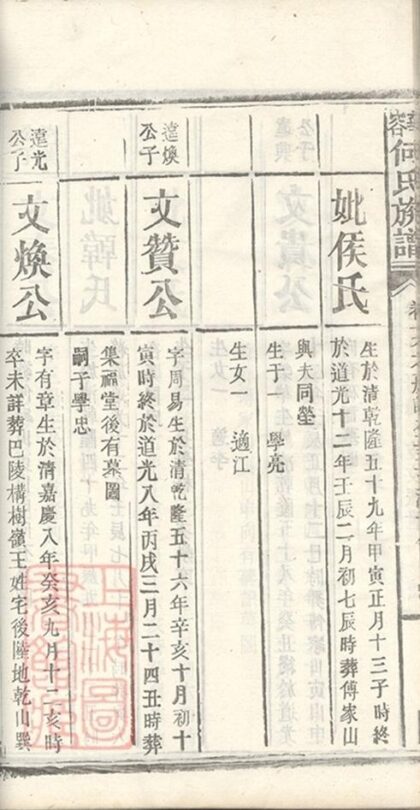 何氏族譜
妣侯氏
生於清乾隆五十九年甲寅正月十三子時終
於道光十二年壬辰二月初七辰時葬傅家山
與夫同塋
生子一　學亮
生女一　適江
遠煥
公子
文贊公
字周易生於清乾隆五十六年辛亥十月初十
寅時終於道光八年丙戌三月二十四丑時葬
集福堂後有墓圖
嗣子學忠
遠光
公子
文煥公
字有章生於清嘉慶八年癸亥九月十二亥時
卒未詳葬巴陵構樹嶺王姓宅後陸地乾山巽